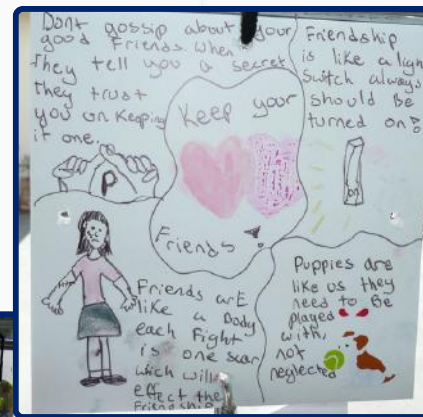 Dont gossip about your
good Friends. When
they tell you a secret
they trust
you on Keeping
it one...
P
Keep your
Friends
Friendship
is like a light
switch always
should be
turned on
on
Friends arE
like a Body
each Fight
is one scar
which will
effect the
Friendship
Puppies are
like us they
need to Be
played
with,
not
neglected